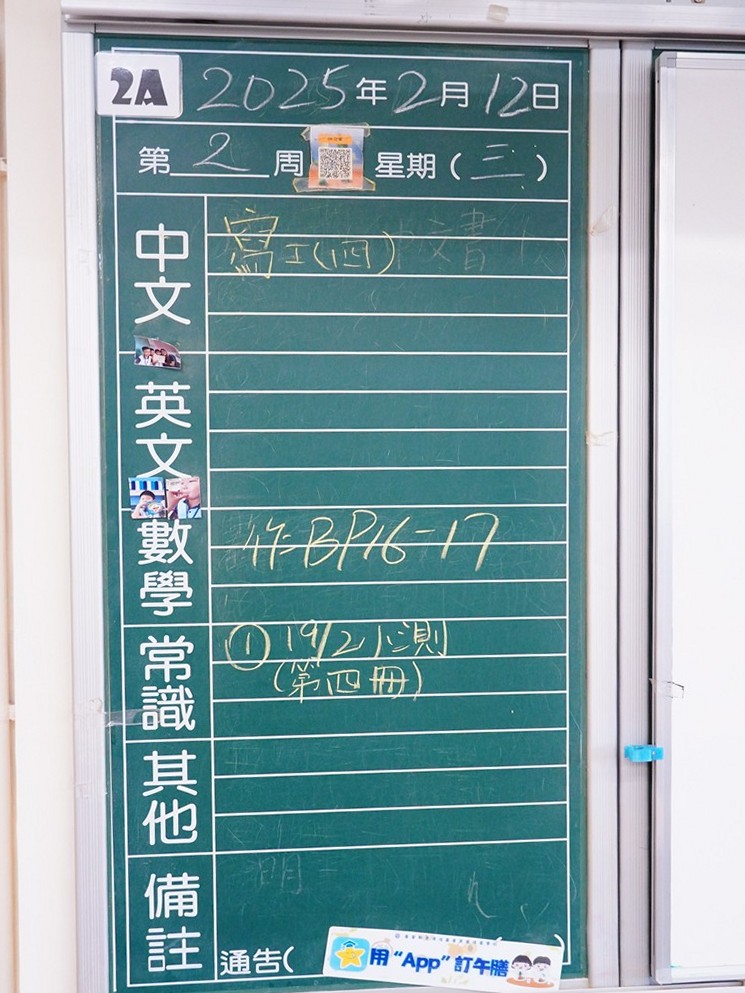 2A
2025年2月12日
第2周 星期(三)
中文
寫工(四)
英文
數學
作BP16-17
常識
① 19/2小測
(第四冊)
其他
備註
通告(
用“App”訂午膳